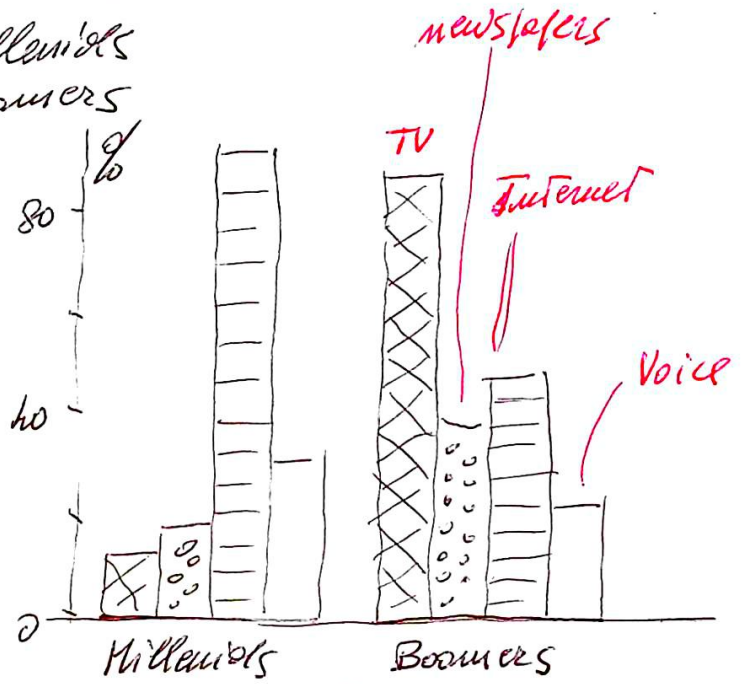 llenials
oomers
newspapers
%
TV
80
Internet
Voice
40
0
Millenials
Boomers